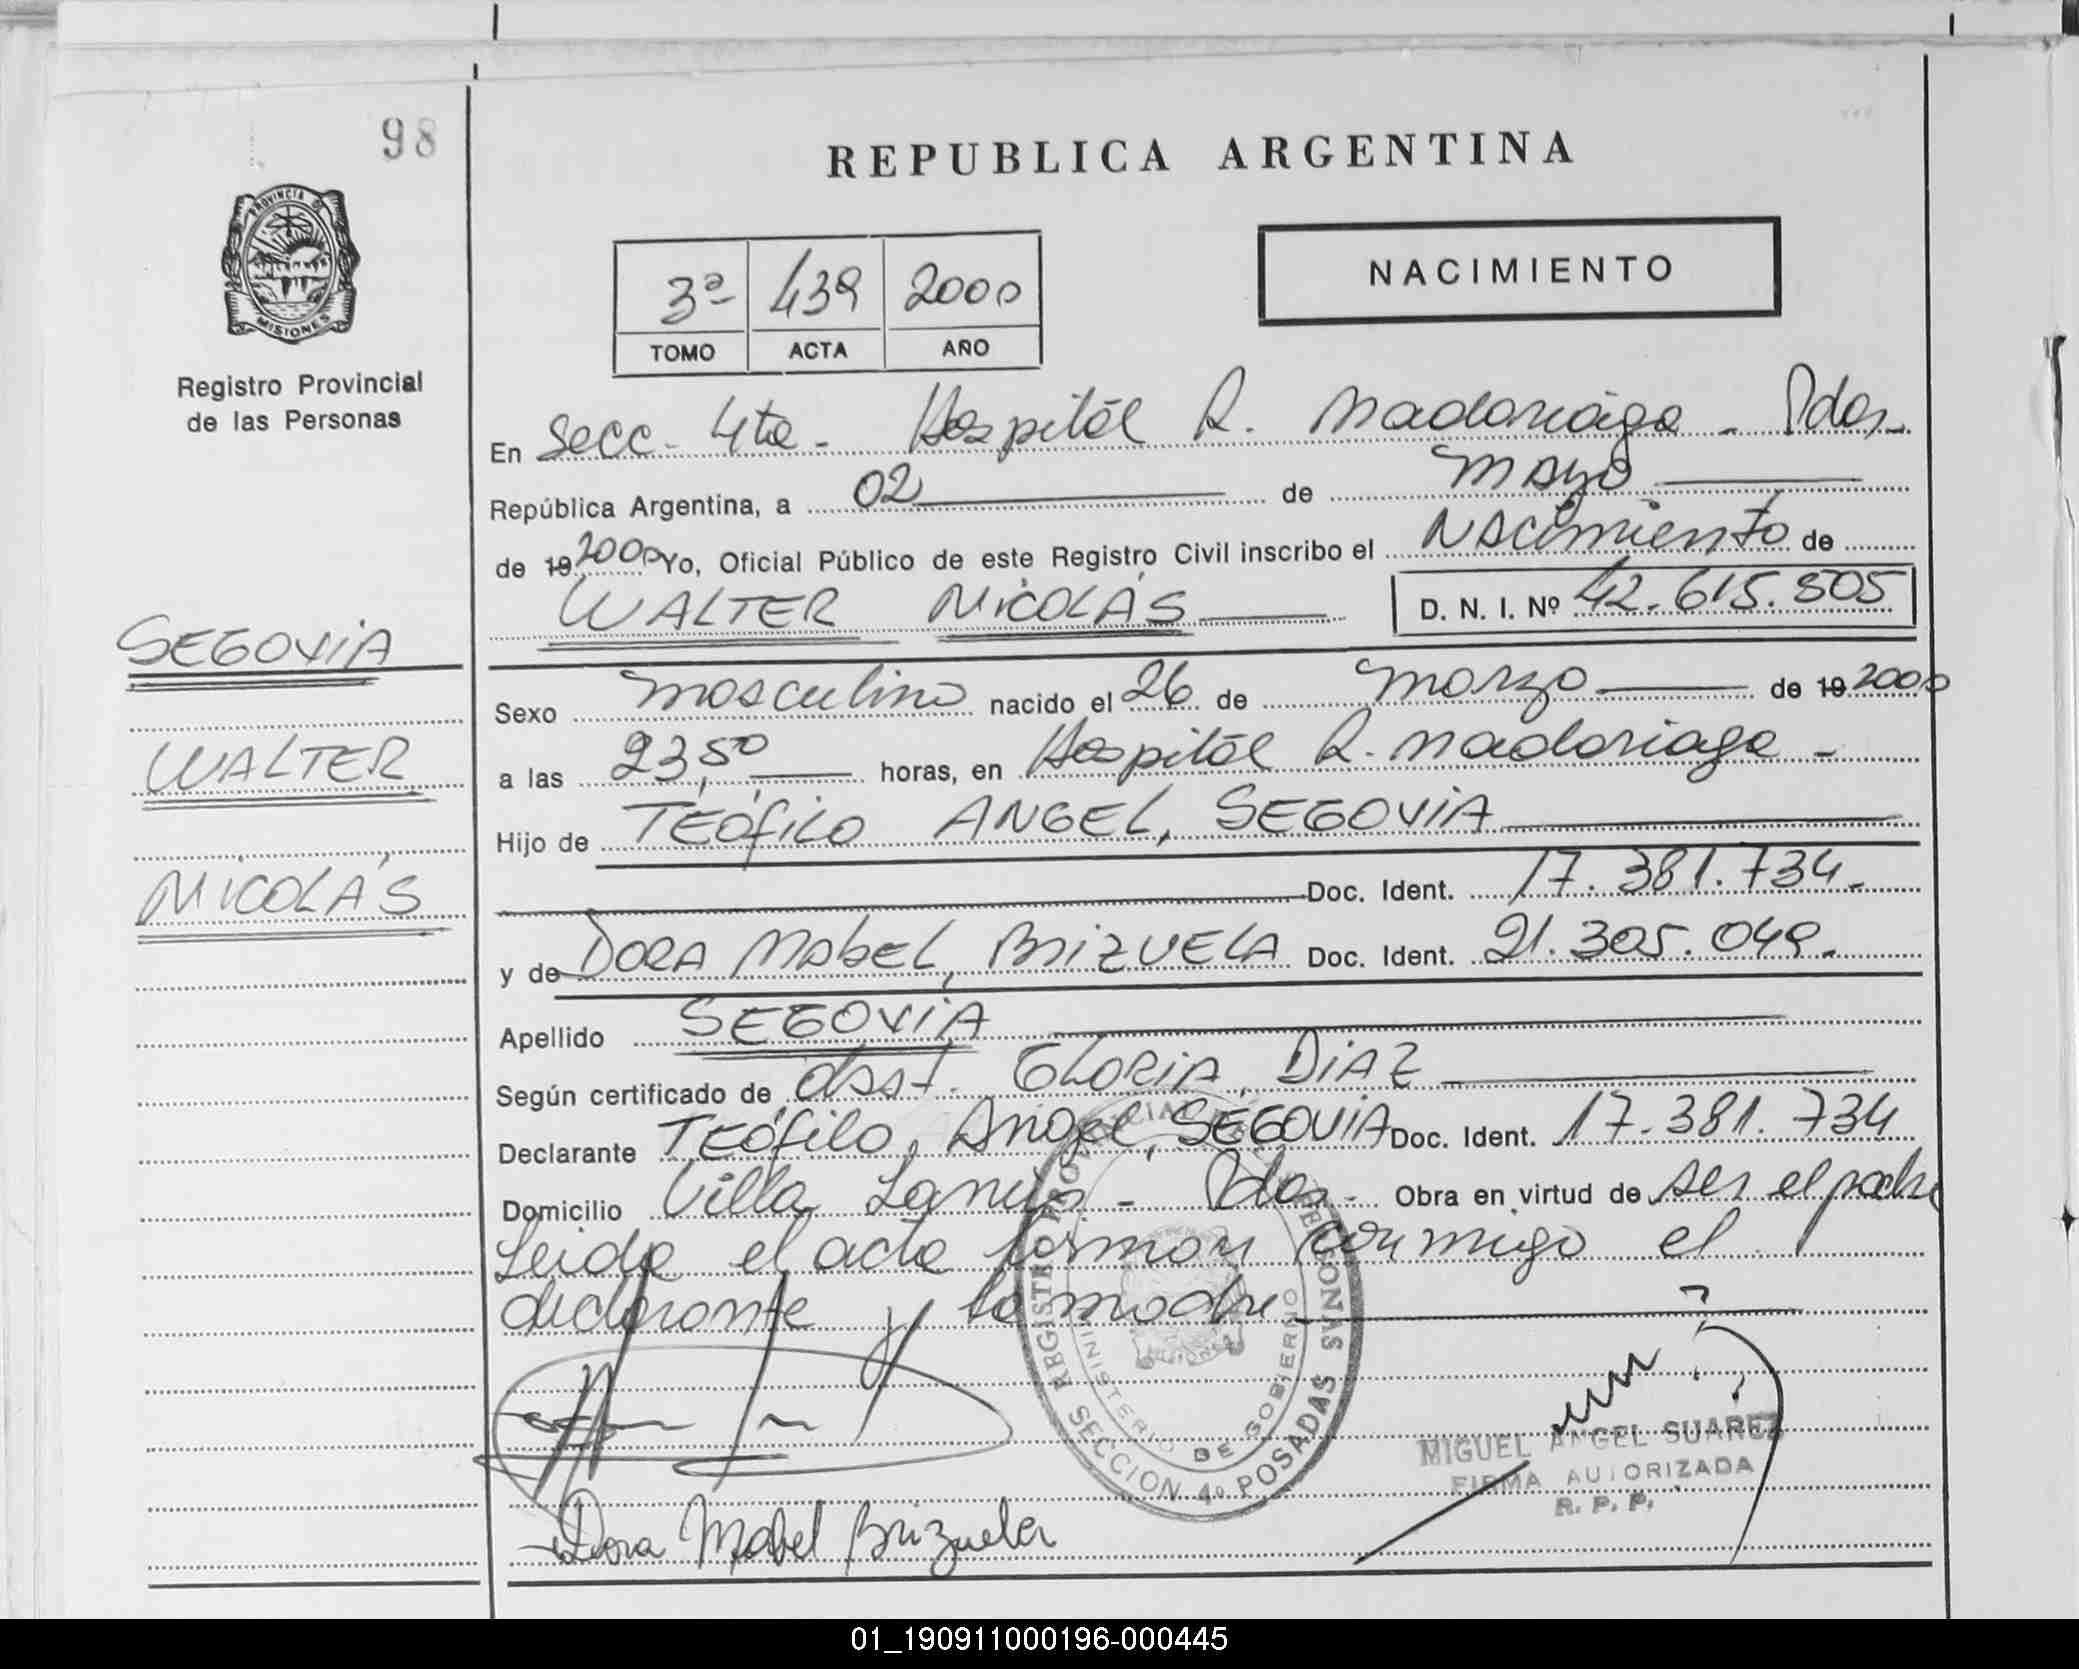 98
REPUBLICA ARGENTINA
PROVINCIA DE
MISIONES
Registro Provincial
de las Personas
3º- 439 2000
TOMO ACTA AÑO
NACIMIENTO
En Secc. 4ta - Hospital R. Madariaga - Pdas.
República Argentina, a 02 de Mayo
de 19 2000 Yo, Oficial Público de este Registro Civil inscribo el Nacimiento de
WALTER NICOLÁS D. N. I. Nº 42.615.505
SEGOVIA
WALTER
NICOLÁS
Sexo masculino nacido el 26 de marzo de 19 2000
a las 23,50 horas, en Hospital R. Madariaga -
Hijo de TEÓFILO ANGEL, SEGOVIA
Doc. Ident. 17.381.734.
y de DORA MABEL, BRIZUELA Doc. Ident. 21.305.049.
Apellido SEGOVIA
Según certificado de obst. GLORIA, DIAZ
Declarante TEÓFILO, Angel, SEGOVIA Doc. Ident. 17.381.734
Domicilio Villa Lanús - Pdas. Obra en virtud de ser el padre
Leida el acta firman conmigo el
declarante y la madre
REGISTRO PROVINCIAL DE LAS PERSONAS
MINISTERIO DE GOBIERNO
SECCION 4º POSADAS
MIGUEL ANGEL SUAREZ
FIRMA AUTORIZADA
R. P. P.
Dora Mabel Brizuela
01_190911000196-000445